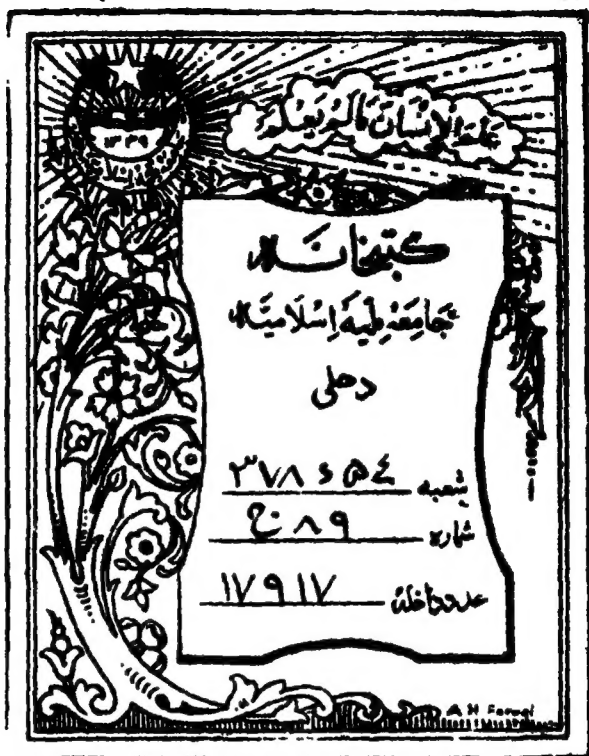 عَلَّمَ الْإِنْسَانَ مَا لَمْ يَعْلَمْ
کتبخانہ
جامعہ ملیہ اسلامیہ
دھلی
شعبہ ۳۷۸ ء ۵۴
شمارہ ۸۹ ج
عدد داخلہ ۱۷۹۱۷